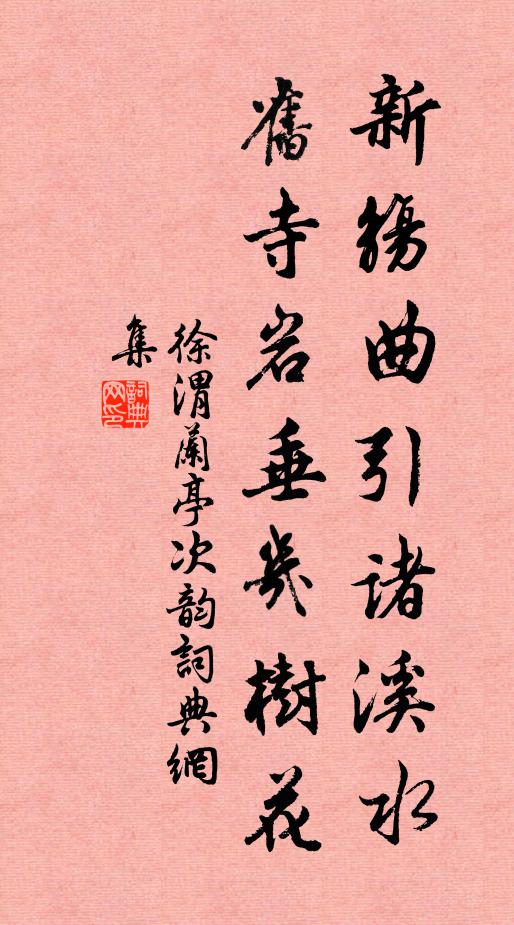 新觴曲引諸溪水
舊寺岩垂幾樹花
徐渭蘭亭次韵詞典網
集
詞典網印